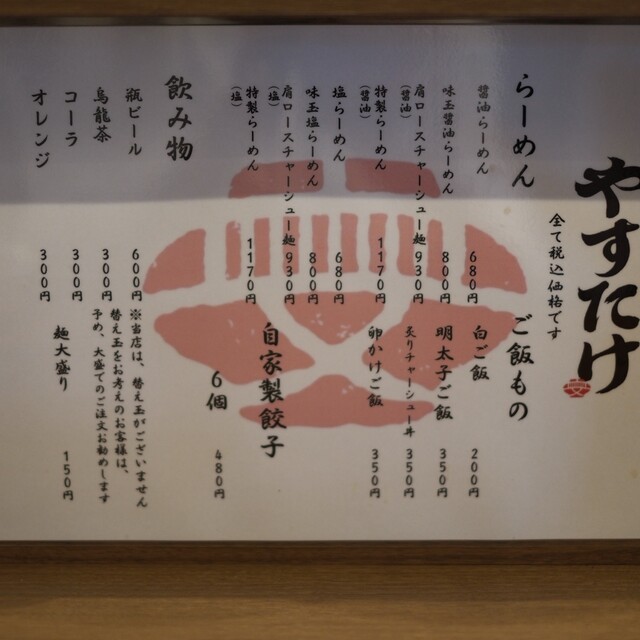 やすたけ
全て税込価格です
らーめん
醤油らーめん 680円
味玉醤油らーめん 800円
肩ロースチャーシュー麺(醤油) 930円
特製らーめん(醤油) 1170円
塩らーめん 680円
味玉塩らーめん 800円
肩ロースチャーシュー麺(塩) 930円
特製らーめん(塩) 1170円
ご飯もの
白ご飯 200円
明太子ご飯 350円
炙りチャーシュー丼 350円
卵かけご飯 350円
自家製餃子
6個 480円
飲み物
瓶ビール 600円
烏龍茶 300円
コーラ 300円
オレンジ 300円
※当店は、替え玉がございません
替え玉をお考えのお客様は、
予め、大盛でのご注文お勧めします
麺大盛り 150円